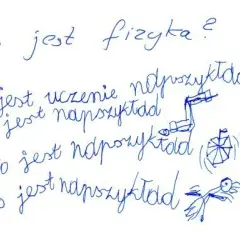 jest fizyka?
jest uczenie napszykład
jest napszykład
o jest napszykład
o jest napszykład